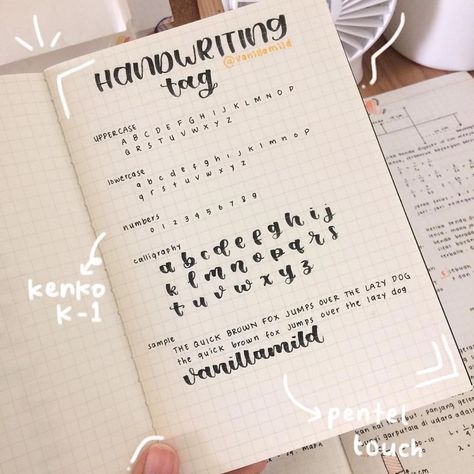 HANDWRITING
tag
@vanillamild
UPPERCASE
A B C D E F G H I J K L M N O P
Q R S T U V W X Y Z
lowercase
a b c d e f g h i j k l m n o p
q r s t u v w x y z
numbers
0 1 2 3 4 5 6 7 8 9
calligraphy
a b c d e f g h i j
k l m n o p q r s
t u v w x y z
sample
THE QUICK BROWN FOX JUMPS OVER THE LAZY DOG
the quick brown fox jumps over the lazy dog
vanillamild
kenko
K-1
pentel
touch